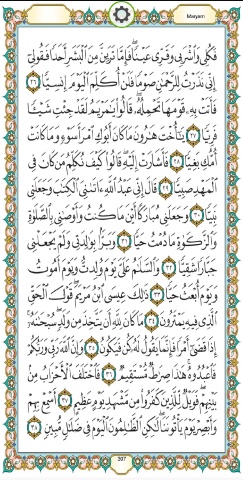 Maryam
فَكُلِي وَاشْرَبِي وَقَرِّي عَيْنًا فَإِمَّا تَرَيِنَّ مِنَ الْبَشَرِ أَحَدًا فَقُولِي
إِنِّي نَذَرْتُ لِلرَّحْمَٰنِ صَوْمًا فَلَنْ أُكَلِّمَ الْيَوْمَ إِنسِيًّا ٢٦
فَأَتَتْ بِهِ قَوْمَهَا تَحْمِلُهُ قَالُوا يَا مَرْيَمُ لَقَدْ جِئْتِ شَيْئًا
فَرِيًّا ٢٧ يَا أُخْتَ هَارُونَ مَا كَانَ أَبُوكِ امْرَأَ سَوْءٍ وَمَا كَانَتْ
أُمُّكِ بَغِيًّا ٢٨ فَأَشَارَتْ إِلَيْهِ قَالُوا كَيْفَ نُكَلِّمُ مَن كَانَ فِي
الْمَهْدِ صَبِيًّا ٢٩ قَالَ إِنِّي عَبْدُ اللَّهِ آتَانِيَ الْكِتَابَ وَجَعَلَنِي
نَبِيًّا ٣٠ وَجَعَلَنِي مُبَارَكًا أَيْنَ مَا كُنتُ وَأَوْصَانِي بِالصَّلَاةِ
وَالزَّكَاةِ مَا دُمْتُ حَيًّا ٣١ وَبَرًّا بِوَالِدَتِي وَلَمْ يَجْعَلْنِي
جَبَّارًا شَقِيًّا ٣٢ وَالسَّلَامُ عَلَيَّ يَوْمَ وُلِدتُّ وَيَوْمَ أَمُوتُ
وَيَوْمَ أُبْعَثُ حَيًّا ٣٣ ذَٰلِكَ عِيسَى ابْنُ مَرْيَمَ قَوْلَ الْحَقِّ
الَّذِي فِيهِ يَمْتَرُونَ ٣٤ مَا كَانَ لِلَّهِ أَن يَتَّخِذَ مِن وَلَدٍ سُبْحَانَهُ
إِذَا قَضَىٰ أَمْرًا فَإِنَّمَا يَقُولُ لَهُ كُن فَيَكُونُ ٣٥ وَإِنَّ اللَّهَ رَبِّي وَرَبُّكُمْ
فَاعْبُدُوهُ هَٰذَا صِرَاطٌ مُّسْتَقِيمٌ ٣٦ فَاخْتَلَفَ الْأَحْزَابُ مِن
بَيْنِهِمْ فَوَيْلٌ لِّلَّذِينَ كَفَرُوا مِن مَّشْهَدِ يَوْمٍ عَظِيمٍ ٣٧ أَسْمِعْ بِهِمْ
وَأَبْصِرْ يَوْمَ يَأْتُونَنَا لَٰكِنِ الظَّالِمُونَ الْيَوْمَ فِي ضَلَالٍ مُّبِينٍ ٣٨
307